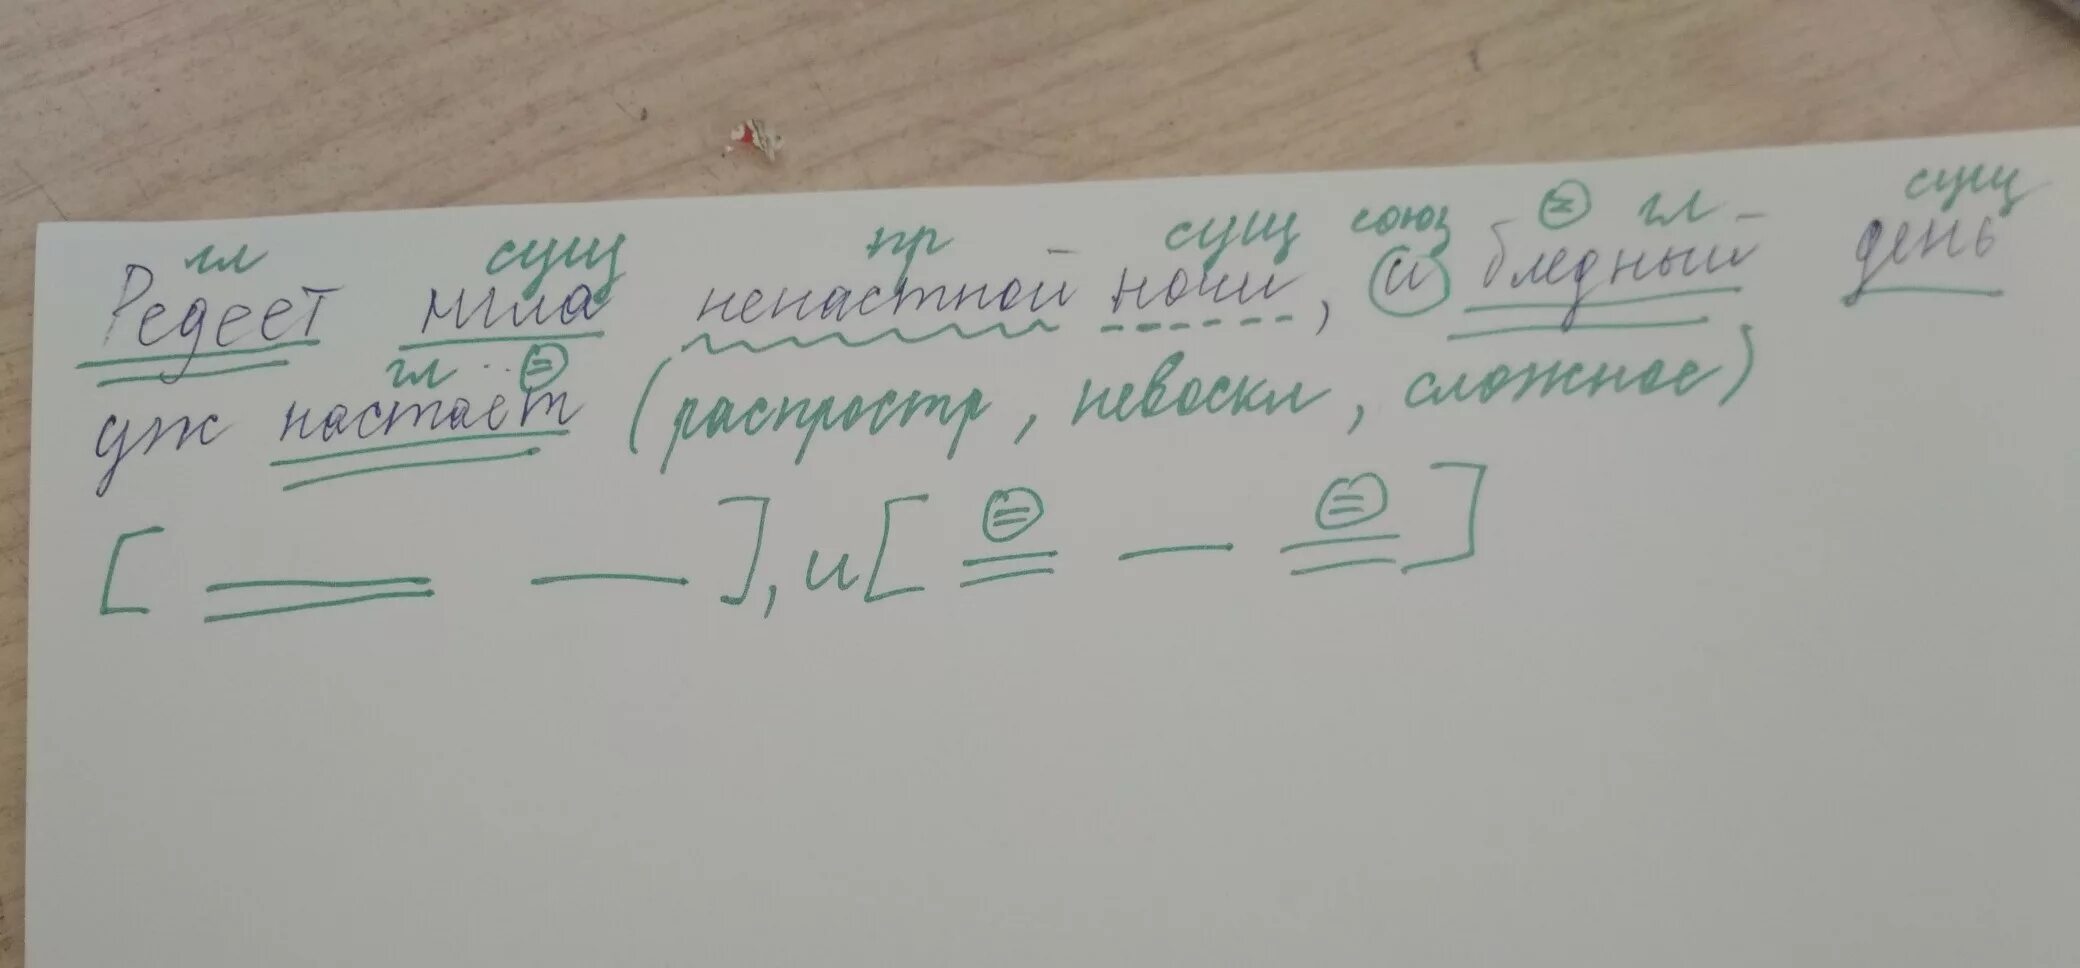 гл сущ пр сущ союз гл сущ
Редеет мгла ненастной ночи, и бледный день
гл
уж настает (распростр, невоскл, сложное)
[ ], и [ — ]